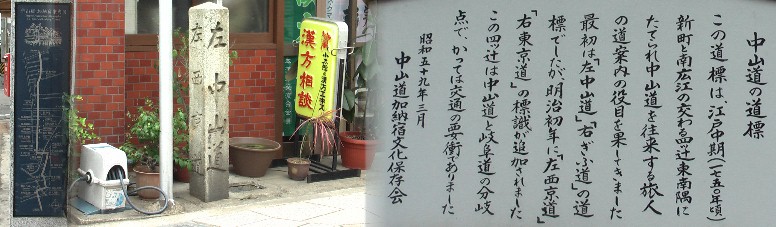 左 中山道
左 西京道
漢方相談
中山道の道標
この道標は、江戸中期(一七五〇年頃)
新町と南広江の交わる四ツ辻東南隅に
たてられ中山道を往来する旅人
の道案内の役目を果してきました
最初は「左中山道」「右ぎふ道」の道
標でしたが、明治初年に「左西京道」
「右東京道」の標識が追加されました
この四ツ辻は中山道と岐阜道の分岐
点で、かっては交通の要衝でありました
昭和五十九年三月
中山道加納宿文化保存会